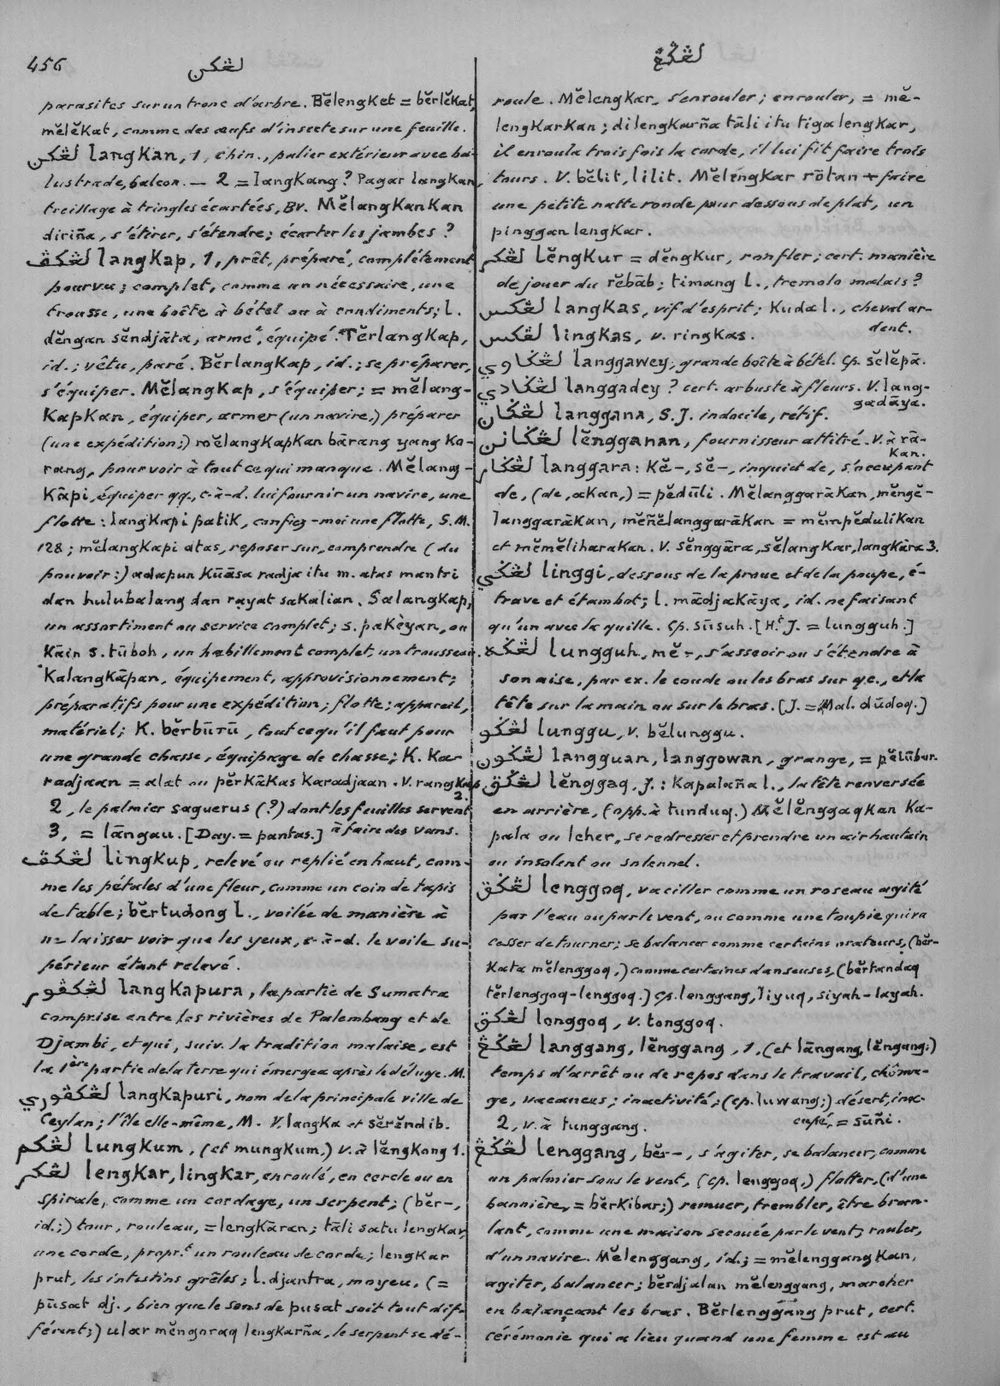 456
لڠكن
parasites sur un tronc d'arbre. Bĕlengket = bĕrlĕkat,
mĕlĕkat, comme des œufs d'insecte sur une feuille.
لڠكن langkan, 1, chin., palier extérieur avec ba-
lustrade, balcon. — 2 = langkang? Pagar langkan,
treillage à tringles écartées, Bv. Mĕlangkankan
diriña, s'étirer, s'étendre; écarter les jambes?
لڠكڤ langkap, 1, prêt, préparé, complétement
pourvu; complet, comme un nécessaire, une
trousse, une boîte à bétel ou à condiments; l.
dĕngan sĕndjāta, armé, équipé. Tĕrlangkap,
id.; vêtu, paré. Bĕrlangkap, id.; se préparer,
s'équiper. Mĕlangkap, s'équiper; = mĕlang-
kapkan, équiper, armer (un navire,) préparer
(une expédition;) mĕlangkapkan bārang yang ka-
rang, pourvoir à tout ce qui manque. Mĕlang-
kāpi, équiper qq., c-à-d. lui fournir un navire, une
flotte: langkapi patik, confiez-moi une flotte, S.M.
128; mĕlangkapi atas, reposer sur, comprendre (du
pouvoir:) adapun kūāsa radja itu m. atas mantri
dan hulubalang dan rayat sakalian. Salangkap,
un assortiment ou service complet; s. pakéyan, ou
kāin s. tūboh, un habillement complet, un trousseau.
Kalangkāpan, équipement, approvisionnement;
préparatifs pour une expédition; flotte; appareil,
matériel; K. bĕrbūrū, tout ce qu'il faut pour
une grande chasse, équipage de chasse; K. Ka-
radjaan = alat ou pĕrkākas karadjaan. V. rangkap
2.
2, le palmier saguerus (?) dont les feuilles servent
3, = lāngau. [Day. = pantas.] à faire des vans.
لڠكڤ lingkup, relevé ou replié en haut, com-
me les pétales d'une fleur, comme un coin de tapis
de table; bĕrtudong l., voilée de manière à
ne laisser voir que les yeux, c-à-d. le voile su-
périeur étant relevé.
لڠكڤور langkapura, la partie de Sumatra
comprise entre les rivières de Palembang et de
Djambi, et qui, suiv. la tradition malaise, est
la 1ère partie de la terre qui émergea après le déluge. M.
لڠكڤوري langkapuri, nom de la principale ville de
Ceylan; l'île elle-même, M. V. langka et sĕrĕndib.
لڠكم lungkum, (et mungkum,) v. à lĕngkong 1.
لڠكر lengkar, lingkar, enroulé, en cercle ou en
spirale, comme un cordage, un serpent; (bĕr-,
id.;) tour, rouleau, = lengkāran; tāli satu lengkar,
une corde, propr.t un rouleau de corde; lengkar
prut, les intestins grêles; l. djantra, moyeu, (=
pūsat dj., bien que le sens de pusat soit tout dif-
férent;) ular mĕngoraq lengkarña, le serpent se dé-
لڠكڠ
roule. Mĕlengkar, s'enrouler; enrouler, = mĕ-
lengkarkan; dilengkarña tāli itu tiga lengkar,
il enroula trois fois la corde, il lui fit faire trois
tours. V. bĕlit, lilit. Mĕlengkar rōtan + faire
une petite natte ronde pour dessous de plat, un
pinggan lengkar.
لڠكر lĕngkur = dĕngkur, ronfler; cert. manière
de jouer du rĕbāb; timang l., tremolo malais?
لڠكس langkas, vif d'esprit; kuda l., cheval ar-
dent.
لڠكس lingkas, v. ringkas.
لڠݢاوي langgawey, grande boîte à bétel. Cp. sĕlĕpā.
لڠݢادي langgadey? cert. arbuste à fleurs. V. lang-
gadāya.
لڠݢان langgana, S.J. indocile, rétif.
لڠݢانن lĕngganan, fournisseur attitré. V. à rā-
kan.
لڠݢار langgara: Kĕ-, sĕ-, inquiet de, s'occupant
de, (de, akan,) = pĕdūli. Mĕlanggarākan, mĕngĕ-
langgarākan, mĕñĕlanggarākan = mĕmpĕdulikan
et mĕmĕliharakan. V. sĕnggāra, sĕlangkar, langkāra 3.
لڠݢي linggi, dessous de la proue et de la poupe, é-
trave et étambot; l. mādjakāya, id. ne faisant
qu'un avec la quille. Cp. sūsuh. [H.t J. = lungguh.]
لڠݢه lungguh, mĕ-, s'asseoir ou s'étendre à
son aise, par ex. le coude ou les bras sur qc., et la
tête sur la main ou sur le bras. [J. = Mal. dūdoq.]
لڠݢو lunggu, v. bĕlunggu.
لڠݢون langguan, langgowan, grange, = pĕlūbur.
لڠݢق lĕnggaq, J.: Kapalaña l., la tête renversée
en arrière, (opp. à tunduq.) Mĕlĕnggaqkan ka-
pala ou leher, se redresser et prendre un air hautain
ou insolent ou solennel.
لڠݢق lenggoq, vaciller comme un roseau agité
par l'eau ou par le vent, ou comme une toupie qui va
cesser de tourner; se balancer comme certains orateurs, (bĕr-
kata mĕlenggoq,) comme certaines danseuses, (bĕrtandaq
tĕrlenggoq-lenggoq.) Cp. lenggang, liyuq, siyah-layah.
لڠݢق longgoq, v. tonggoq.
لڠݢڠ langgang, lĕnggang, 1, (et lāngang, lĕngang;)
temps d'arrêt ou de repos dans le travail, chôma-
ge, vacances; inactivité; (cp. luwang;) désert, inoc-
cupé, = sūñi.
2, v. à tunggang.
لڠݢڠ lenggang, bĕr-, s'agiter, se balancer, comme
un palmier sous le vent, (cp. lenggoq,) flotter, (d'une
bannière, = bĕrkibar;) remuer, trembler, être bran-
lant, comme une maison secouée par le vent; rouler,
d'un navire. Mĕlenggang, id.; = mĕlenggangkan,
agiter, balancer; bĕrdjalan mĕlenggang, marcher
en balançant les bras. Bĕrlenggāng prut, cert.
cérémonie qui a lieu quand une femme est au